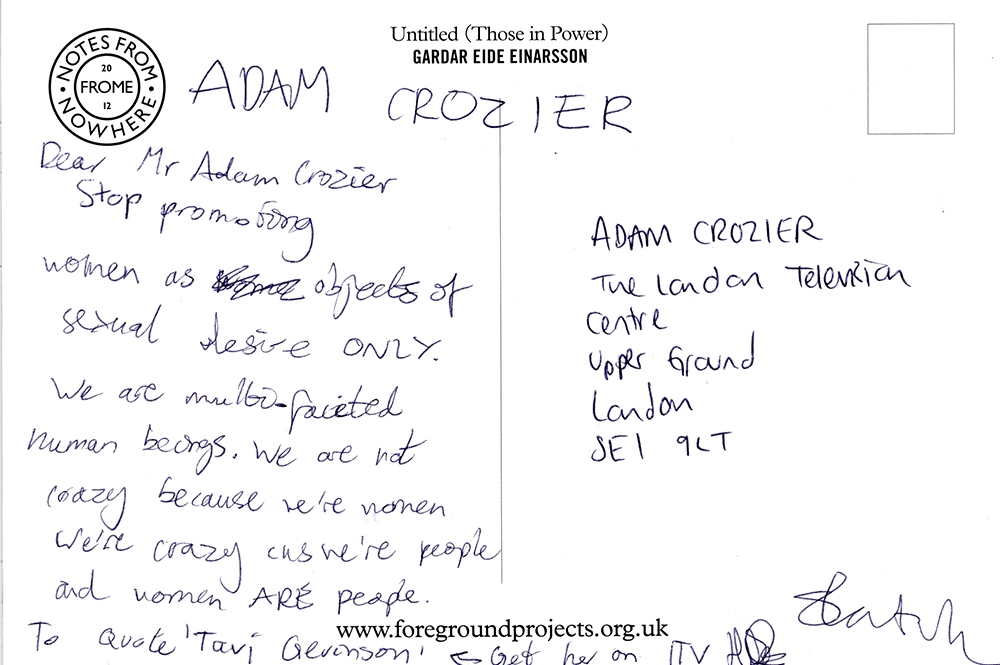 Untitled (Those in Power)
GARDAR EIDE EINARSSON
NOTES FROM NOWHERE
20
FROME
12
ADAM CROZIER
Dear Mr Adam Crozier
Stop promoting
women as objects of
sexual desire ONLY.
We are multi-faceted
human beings. We are not
crazy because we're women
We're crazy cus we're people
and women ARE people.
To quote 'Tavi Gevinson' ← Get her on ITV
ADAM CROZIER
The London Television
Centre
Upper Ground
London
SE1 9LT
www.foregroundprojects.org.uk